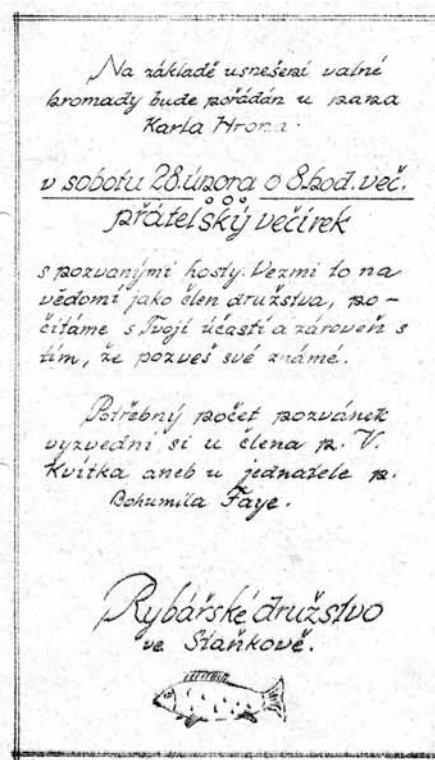 Na základě usnešení valné
hromady bude pořádán u pana
Karla Hrona.
v sobotu 28.února o 8.hod.več.
přátelský večírek
s pozvanými hosty. Vezmi to na
vědomí jako člen družstva, po-
čítáme s Tvojí účastí a zároveň s
tím, že pozveš své známé.
Potřebný počet pozvánek
vyzvedni si u člena p. V.
Kvítka aneb u jednatele p.
Bohumila Faye.
Rybářské družstvo
ve Staňkově.